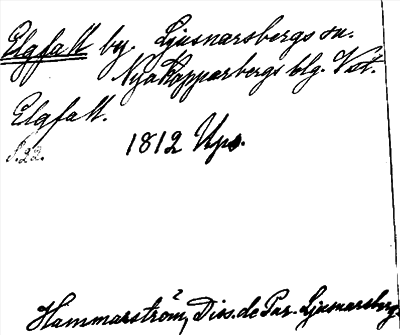 Elgfall by. Ljusnarsbergs sn.
Nya Kopparbergs blg. Vst.
Elgfall.
s.22. 1812 Ups.
Hammarström, Diss. de Par. Ljusnarsberg.